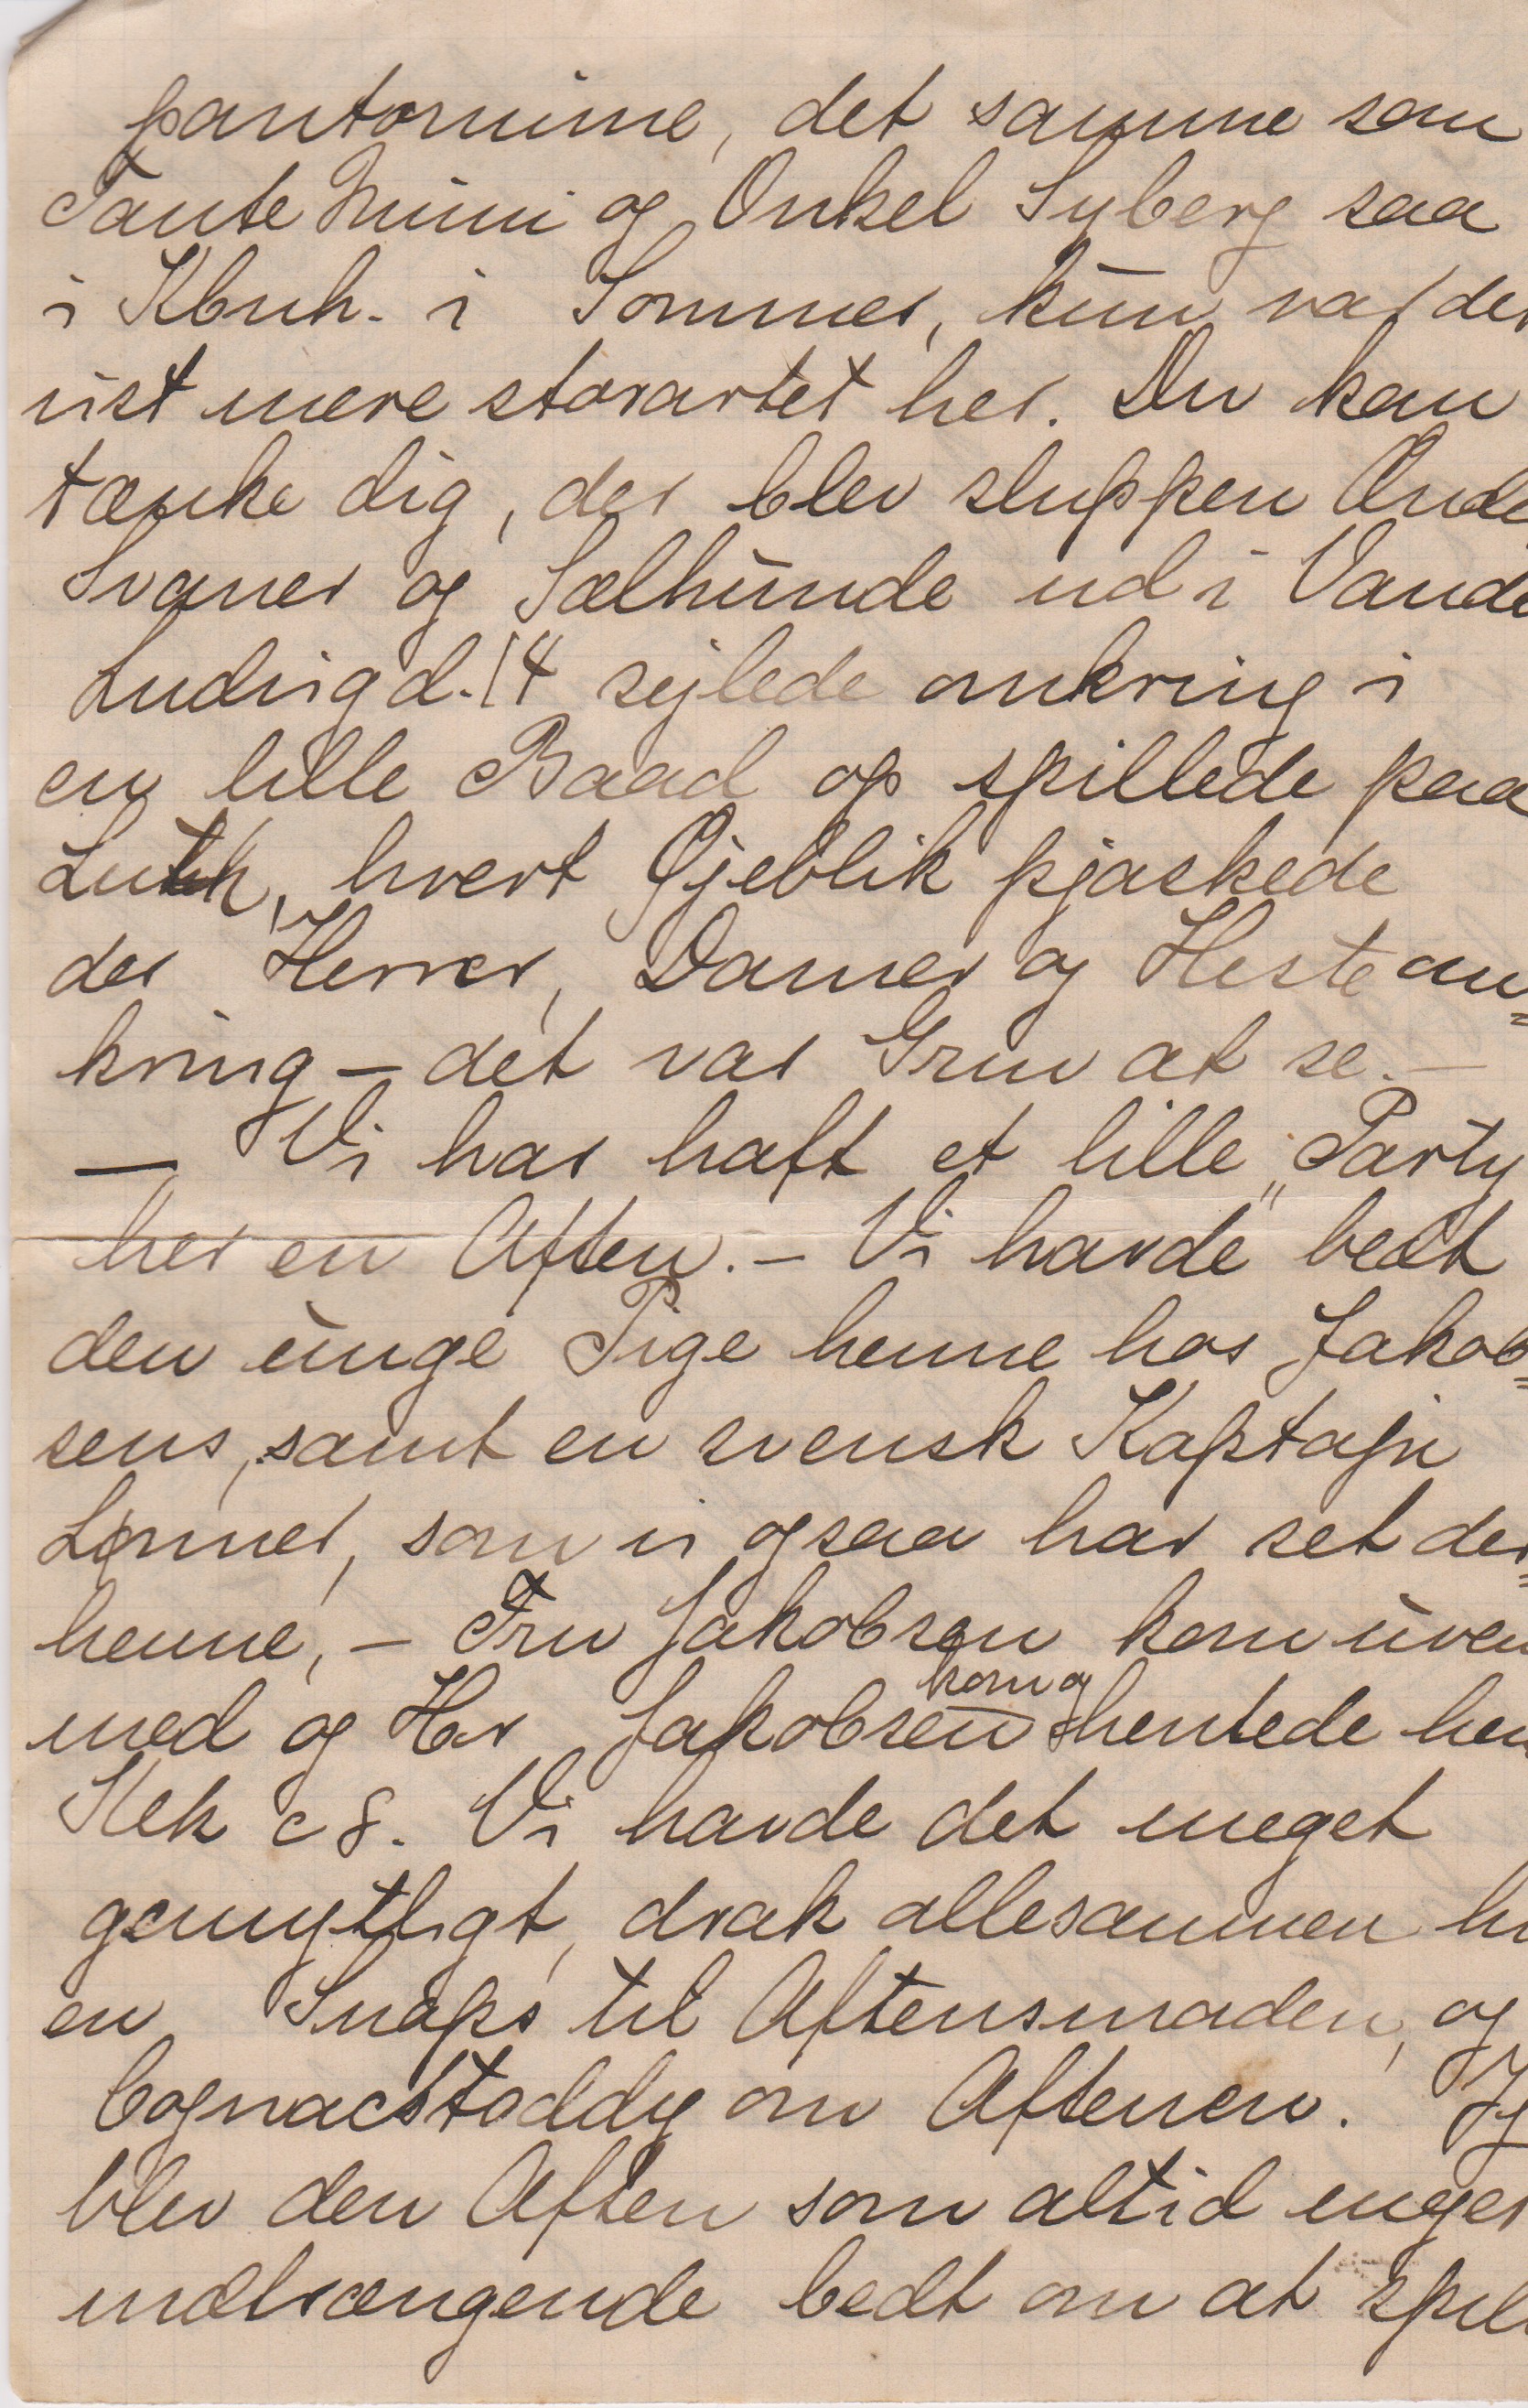 pantomime, det samme som
Tante Mimi og Onkel Syberg saa
i Kbnh. i Sommer, kun var der
vist mere storartet her. Du kan
tænke dig, der blev sluppen Ænde
Svaner og Sælhunde ud i Vande
Ludvig d. 14 sejlede omkring i
en lille Baad og spillede paa
Luth, hvert Øjeblik pjaskede
der Herrer, Damer og Heste om=
kring – det var Grin at se. –
– Vi har haft et lille „Party
her en Aften. – Vi havde bedt
den unge Pige henne hos Jakob=
sens, samt en svensk Kaptajn
Lønner, som vi ogsaa har set der=
henne, – Fru Jakobsen kom uven
med og Hr Jakobsen kom og hentede hen
Klek c 8. Vi havde det meget
gemytligt, drak allesammen hv
en Snaps til Aftensmaden, og
Cognacstoddy om Aftenen. J
blev den Aften som altid meget
indtrængende bedt om at spil